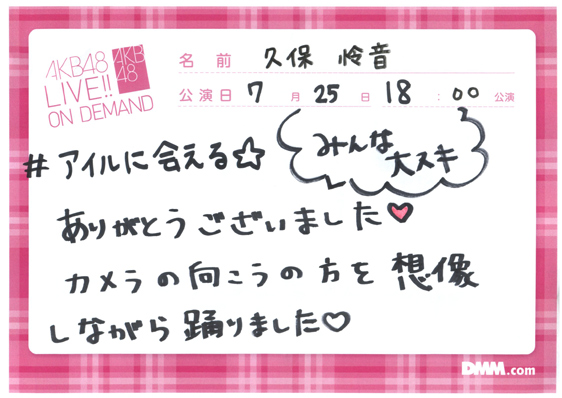 AKB48
LIVE!!
ON DEMAND
AKB
48
名前 久保 怜音
公演日 7月25日 18:00公演
#アイルに会える☆
みんな
大スキ
ありがとうございました♥
カメラの向こうの方を想像
しながら踊りました♡
DMM.com